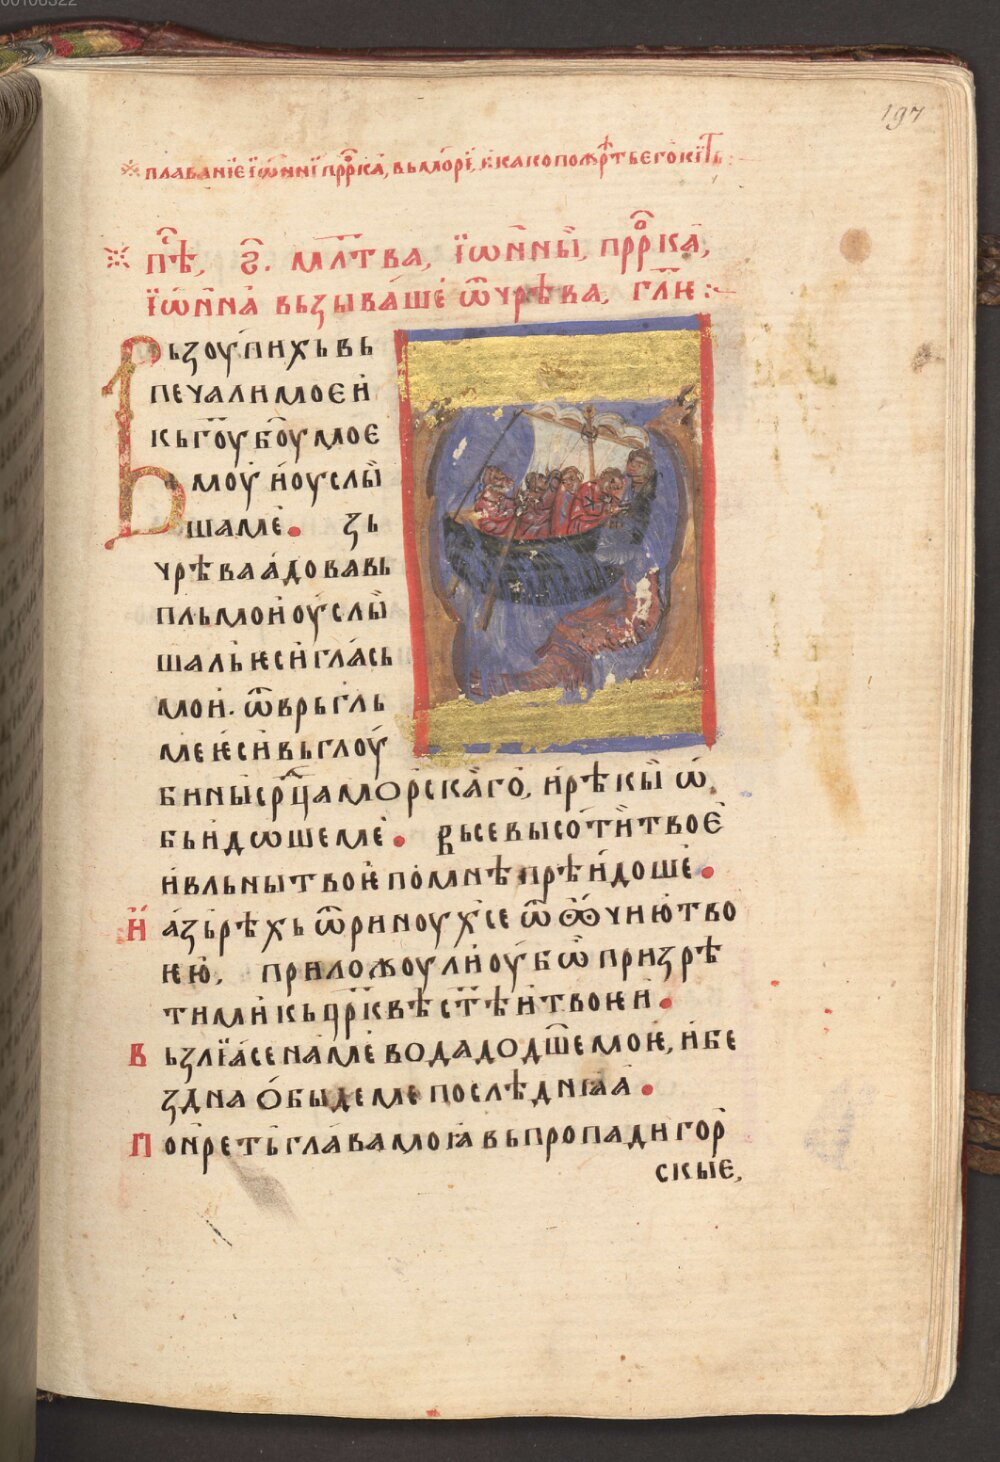 00106522
197
плаваниѥ їѡ҆нни пррⷪ҇ка, вьморѝ, и҆ како пожрⷮ҇ть его китⷭ҇ь :
пѣⷭ҇, ѕ҃. млт҃ва, їѡ҆нны̀, пррⷪ҇ка,
їѡ҆нна̀ вьзыва́ше ѿ чрѣва, гл҃ѥ :
Вьзоупихь вь
печали моеи
кь гоу҃ боу҃ мое
моу̀ и҆ оу҆слы̀
шаме. зь
чрѣва а҆дова вь
пль мои оу҆слы̀
шаль ѥси гла́сь
мои. ѿврьглⸯь
ме ѥ҆си вь глоу
бины срⷣца морскаго, и҆ рѣкы̀ ѡ҆
быидѡше ме. вьсе высо́ти твое
и҆ вльны твоѥ по мнѣ прѣи҆доше.
И҆ а҆зь рѣхь ѿриноухсе ѿ ѻ҆чию̀ тво
ѥю̀, приложоу ли оу҆бѡ призрѣ
ти ми кь цр҃квѣ ст҃ѣи твоѥи.
Вьзлїа́се на ме вода до дш҃е моѥ, и҆ бе
здна ѻ҆быде ме послѣдниꙗа.
Пони́реть глава моꙗ вь пропади гор
скыѥ,